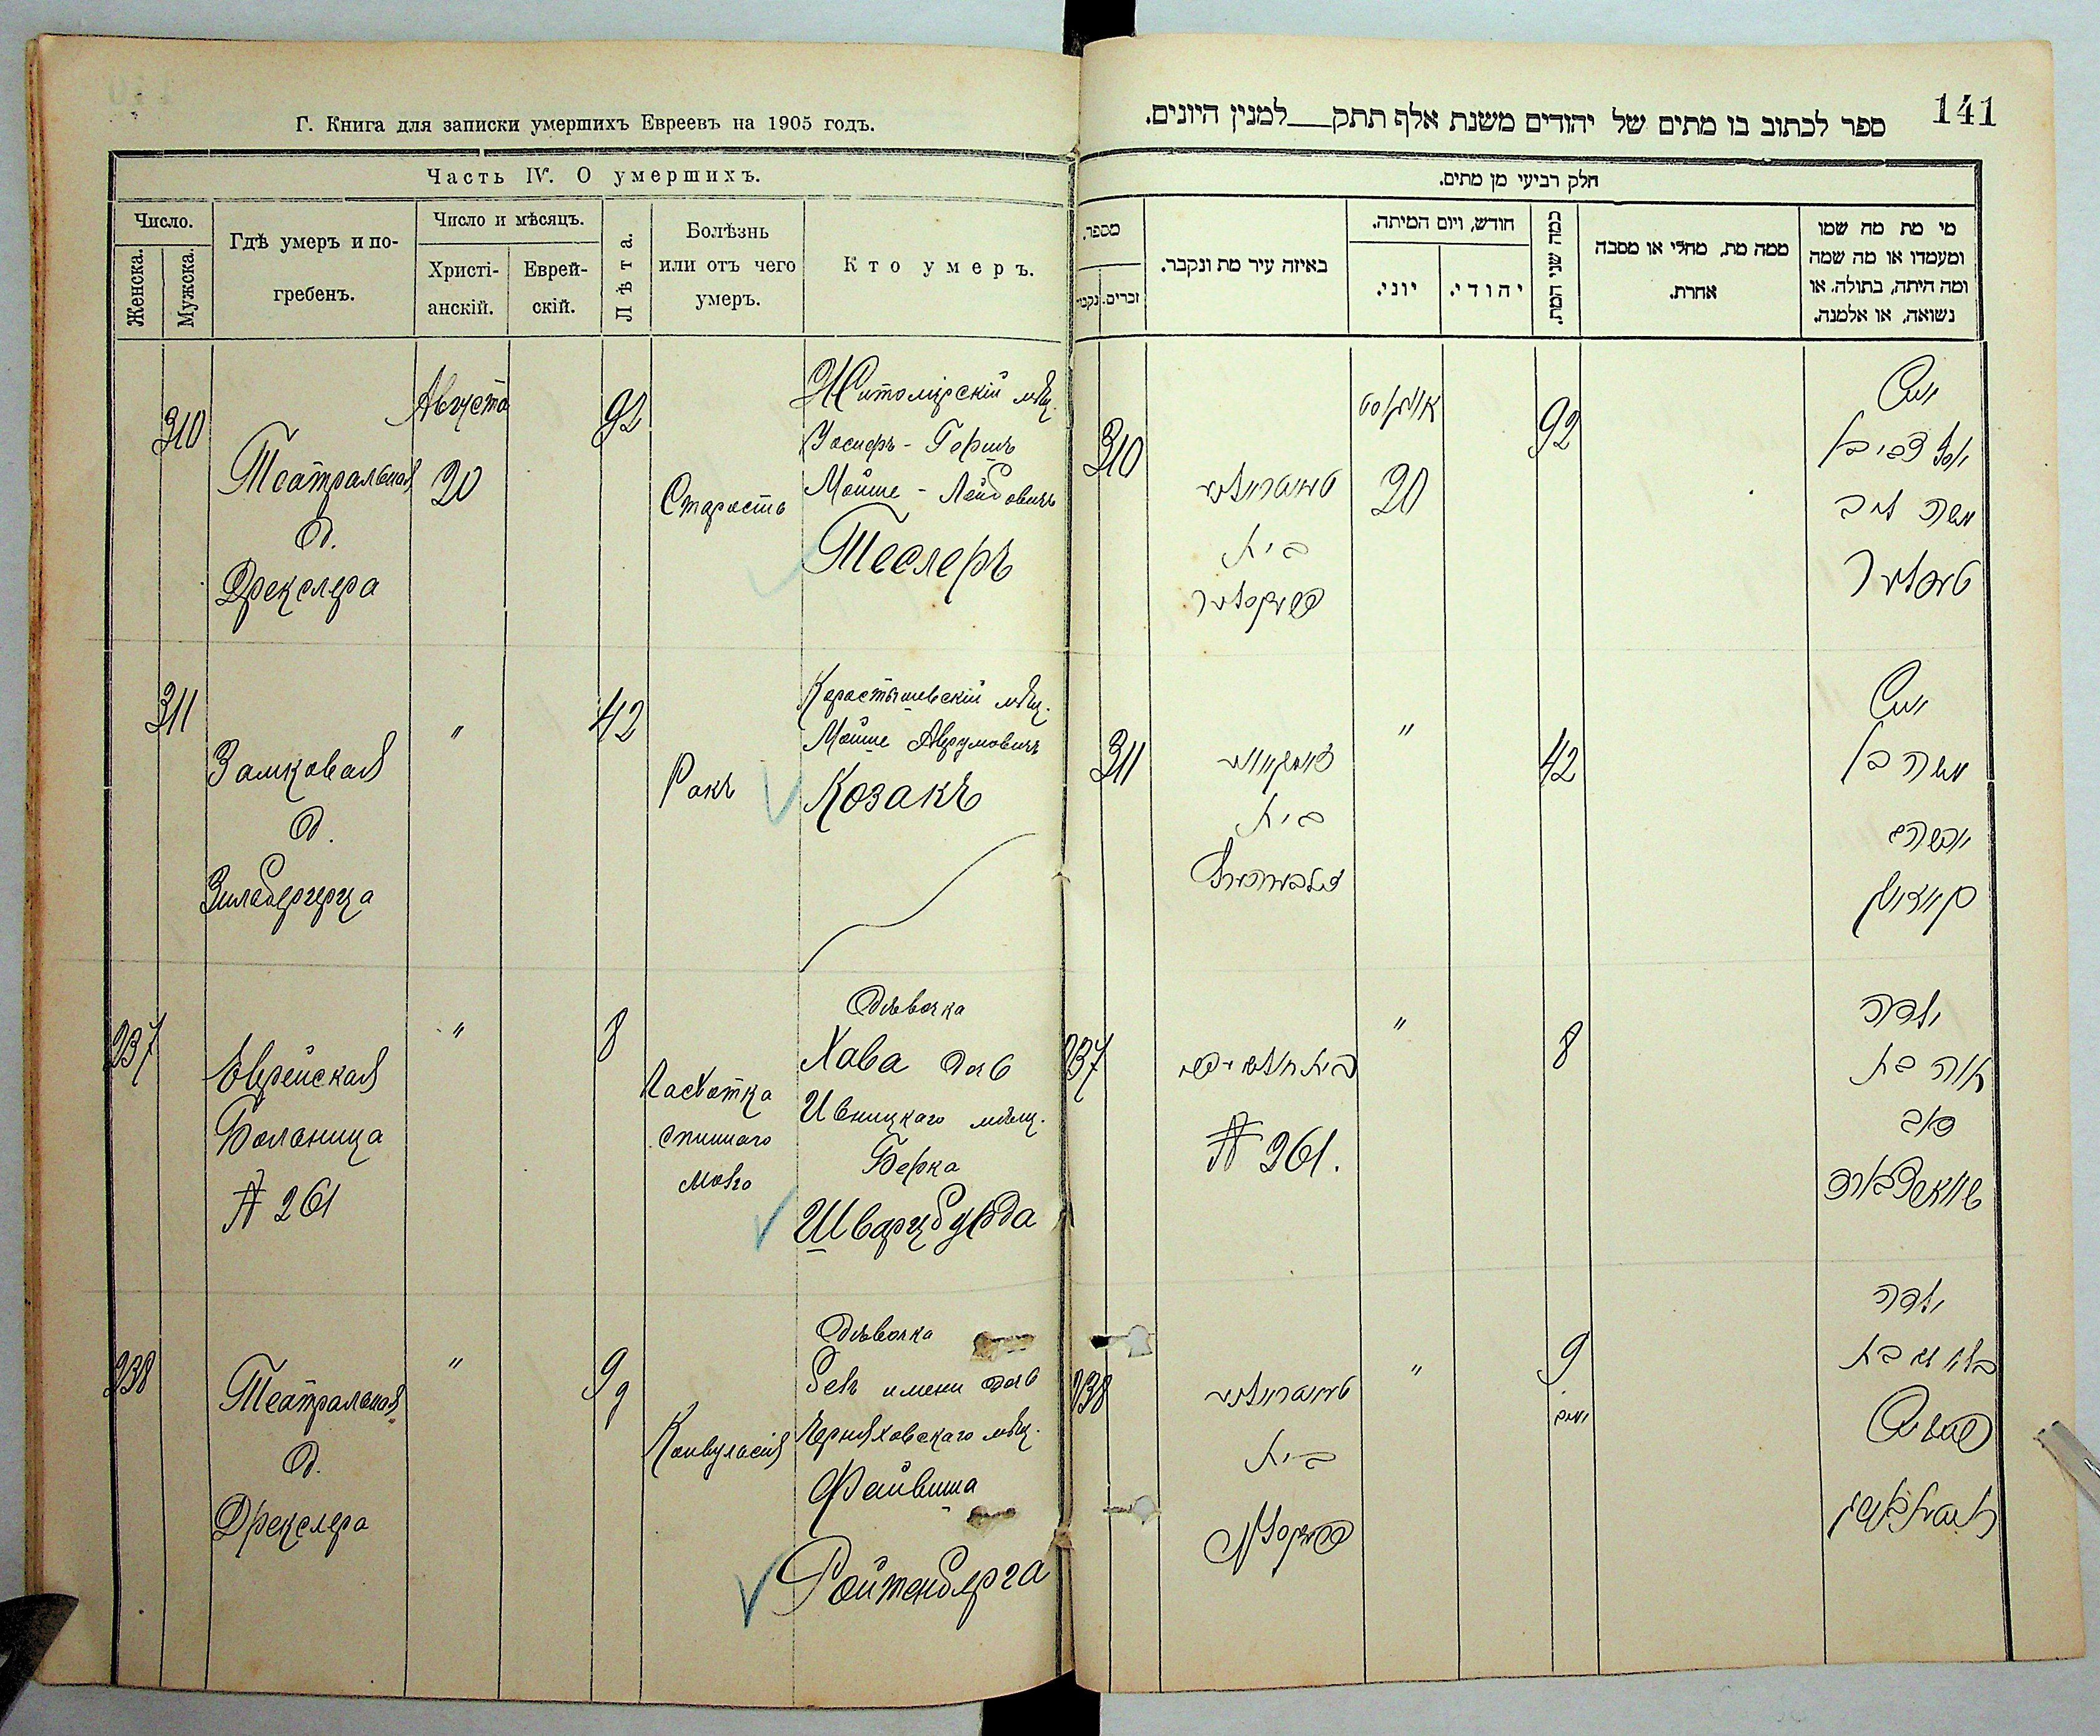 Г. Книга для записки умершихъ Евреевъ на 1905 годъ.
Часть IV. О умершихъ.
Число.
Женска.
Мужска.
Гдѣ умеръ и по-
гребенъ.
Число и мѣсяцъ.
Христі-
анскій.
Еврей-
скій.
Лѣта.
Болѣзнь
или отъ чего
умеръ.
Кто умеръ.
310
Театральная
д.
Дрекслера
Августа
20
92
Старость
Житомірскій мѣщ.
Іосифъ-Гершъ
Мойше-Лейбовичъ
Теслеръ
311
Замковая
д.
"
42
Ракъ
Коростышевскій мѣщ.
Мойше Аврумовичъ
Козакъ
237
Еврейская
Больница
№ 261
"
8
спинного
мозга
Дѣвочка
Хава дочь
Ивницкаго мѣщ.
Берка
Шварцбурда
238
Театральная
д.
Дрекслера
"
9 д
Конвульсія
Дѣвочка
безъ имени дочь
Черняховскаго мѣщ.
Файвиша
Ройтенберга
141
ספר לכתוב בו מתים של יהודים משנת אלף תתק___למנין היונים.
חלק רביעי מן מתים.
מספר.
נקבו
זכרים.
באיזה עיר מת ונקבר.
חודש, ויום המיתה.
יוני.
יהודי.
כמה שני המת.
ממה מת, מחלי או מסבה
אחרת.
מי מת מה שמו
ומעמדו או מה שמה
ומה היתה, בתולה, או
נשואה, או אלמנה.
310
בית
אויגוסט
20
92
איש
יוסף צבי בן
משה ליב
טעסלער
311
בית
"
42
איש
משה בן
אברהם
קאזאק
237
№ 261.
"
8
ילדה
חוה בת
דוב
238
בית
"
9
ימים
ילדה
בלי שם בת